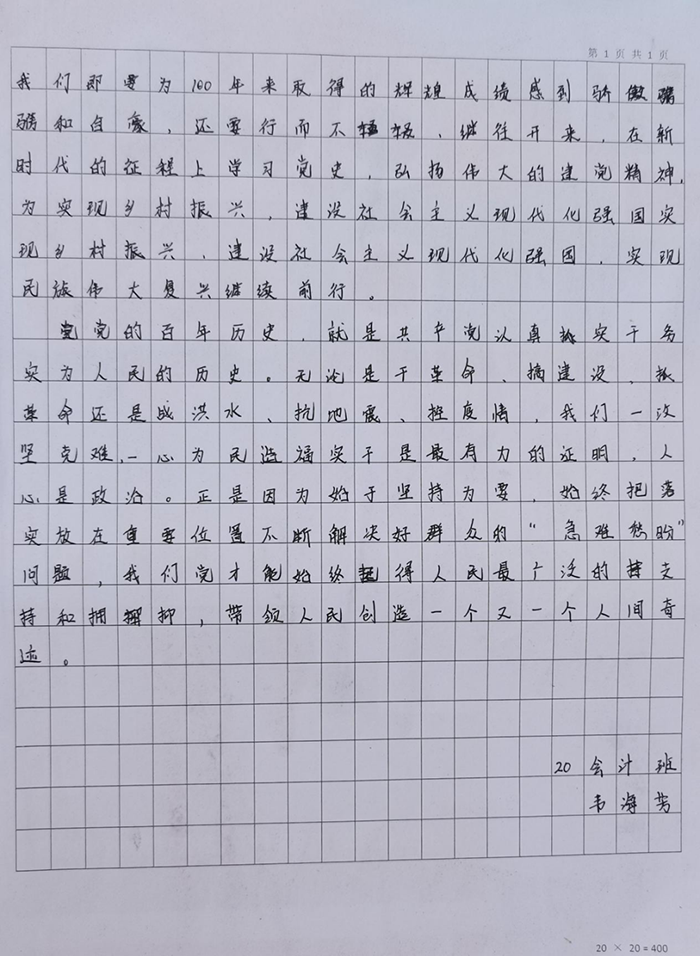 第 1 页 共 1 页
我们即要为100年来取得的辉煌成绩感到骄傲骄
骄和自豪，还要行而不辍，继往开来，在新
时代的征程上学习党史，弘扬伟大的建党精神，
为实现乡村振兴，建设社会主义现代化强国实
现乡村振兴，建设社会主义现代化强国，实现
民族伟大复兴继续前行。
党的百年历史，就是共产党认真抓实干务
实为人民的历史。无论是干革命、搞建设、抓
革命还是战洪水、抗地震、控疫情，我们一次
坚克难，一心为民造福实干是最有力的证明，人
心是政治。正是因为始于坚持为要，始终把落
实放在重要位置不断解决好群众的“急难愁盼”
问题，我们党才能始终得人民最广泛的支
持和拥抑，带领人民创造一个又一个人间奇
迹。
20会计班
韦海芳
20 × 20 = 400